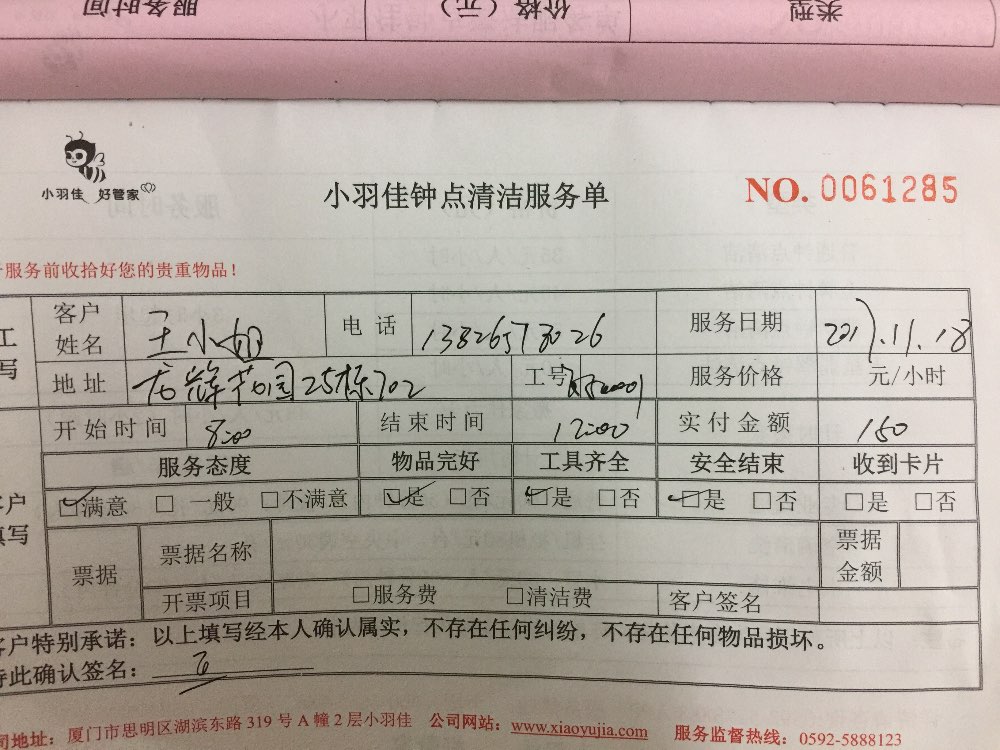 服务时间 价格（元） 类型
小羽佳 好管家
小羽佳钟点清洁服务单
NO. 0061285
服务前收拾好您的贵重物品！
工 客户姓名 王小姐 电 话 13826578026 服务日期 2017.11.18
写 地 址 25栋702 工号 服务价格 元/小时
开始时间 8:00 结束时间 12:00 实付金额 150
服务态度 物品完好 工具齐全 安全结束 收到卡片
客户填写 ☑满意 □ 一般 □不满意 ☑是 □否 ☑是 □否 ☑是 □否 □是 □否
票据 票据名称 票据金额
开票项目 □服务费 □清洁费 客户签名
客户特别承诺：以上填写经本人确认属实，不存在任何纠纷，不存在任何物品损坏。
特此确认签名：
司地址：厦门市思明区湖滨东路 319 号 A 幢 2 层小羽佳 公司网站：www.xiaoyujia.com 服务监督热线：0592-5888123